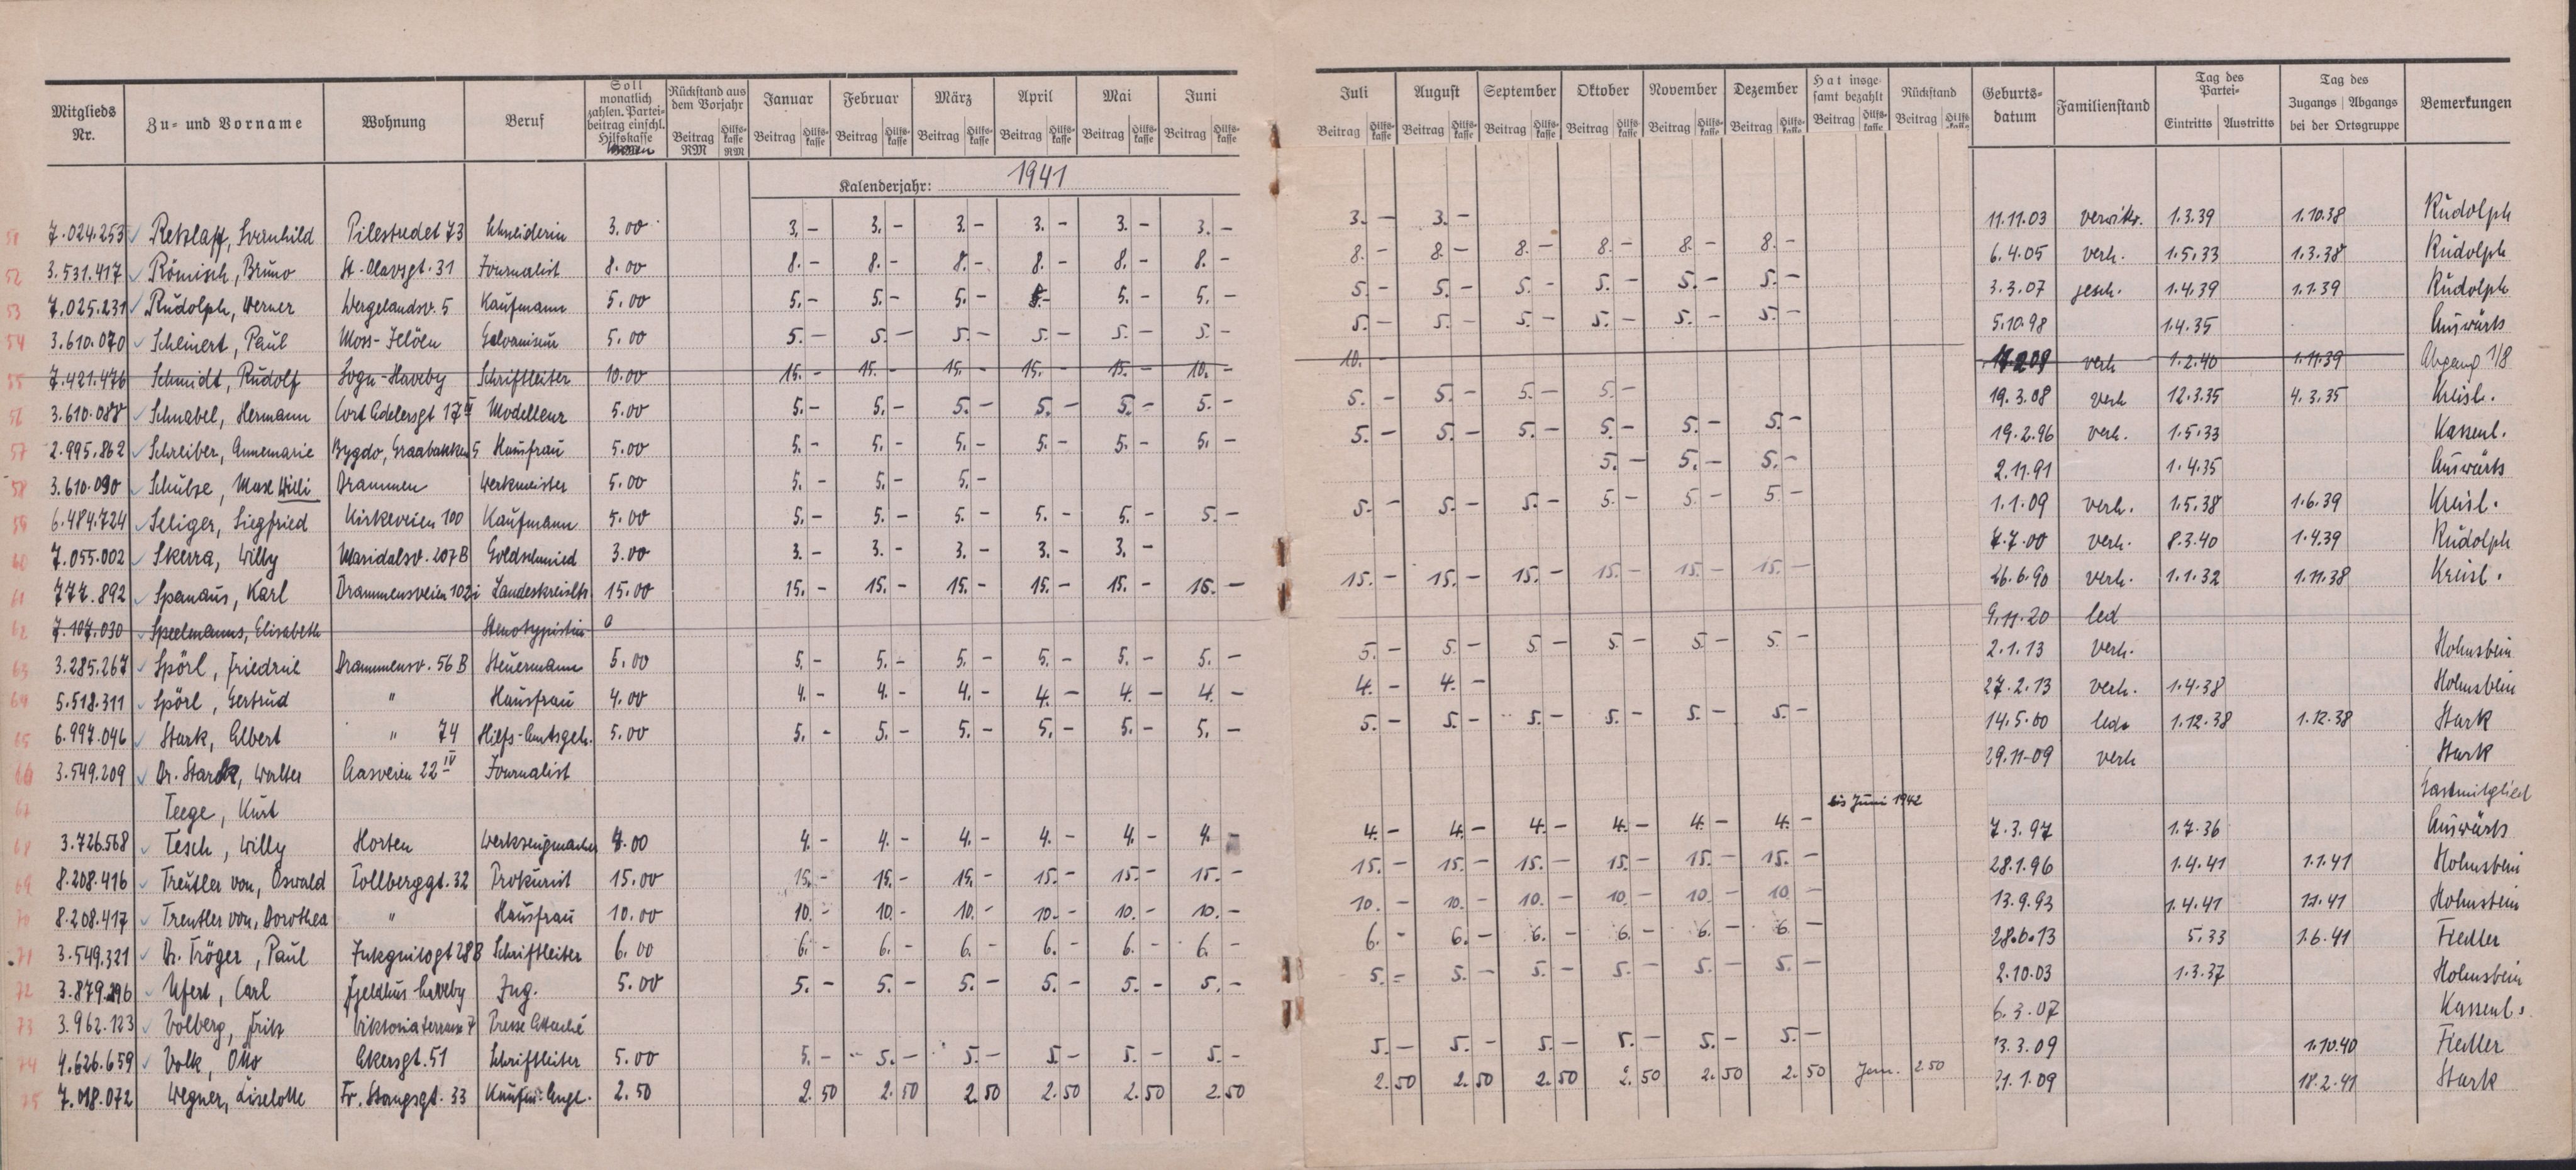 Mitglieds Nr. Zu- und Vorname Wohnung Beruf Soll monatlich zahlen. Partei-beitrag einschl. Hilfskasse Rückstand aus dem Vorjahr Januar Februar März April Mai Juni Juli August September Oktober November Dezember Hat insge-samt bezahlt Rückstand Geburts-datum Familienstand Tag des Partei- Tag des Bemerkungen
Beitrag RM Hilfs-kasse RM Beitrag Hilfs-kasse Beitrag Hilfs-kasse Beitrag Hilfs-kasse Beitrag Hilfs-kasse Beitrag Hilfs-kasse Beitrag Hilfs-kasse Beitrag Hilfs-kasse Beitrag Hilfs-kasse Beitrag Hilfs-kasse Beitrag Hilfs-kasse Beitrag Hilfs-kasse Beitrag Hilfs-kasse Beitrag Hilfs-kasse Beitrag Hilfs-kasse Eintritts Austritts Zugangs Abgangs bei der Ortsgruppe
Kalenderjahr: 1941
7.024.253 Retzlaff, Pilestredet 73 Schneiderin 3.00 3.- 3.- 3.- 3.- 3.- 3.- 3.- 3.- 11.11.03 verwitw. 1.3.39 1.10.38 Rudolph
52 3.531.417 Römisch, Bruno St. Olavsgt. 31 Journalist 8.00 8.- 8.- 8.- 8.- 8.- 8.- 8.- 8.- 8.- 8.- 8.- 8.- 6.4.05 verh. 1.5.33 1.3.38 Rudolph
53 7.025.231 Rudolph, Werner Wergelandsv. 5 Kaufmann 5.00 5.- 5.- 5.- 5.- 5.- 5.- 5.- 5.- 5.- 5.- 5.- 5.- 3.3.07 gesch. 1.4.39 1.1.39 Rudolph
54 3.610.070 Scheinert, Paul Moss-Jelöen Galvaniseur 5.00 5.- 5.- 5.- 5.- 5.- 5.- 5.- 5.- 5.- 5.- 5.- 5.- 5.10.98 1.4.35 Auswärts
55 7.421.476 Schmidt, Rudolf Sogn-Haveby Schriftleiter 10.00 15.- 15.- 15.- 15.- 15.- 10.- 10.- verh 1.2.40 1.11.39 Abgang 1/8
56 3.610.088 Schnabel, Hermann Cort Adelersgt 17 Modelleur 5.00 5.- 5.- 5.- 5.- 5.- 5.- 5.- 5.- 5.- 5.- 19.3.08 verh 12.3.35 4.3.35 Kreisl.
57 2.995.862 Schreiber, Annemarie Bygdo, Graabakken 5 Hausfrau 5.00 5.- 5.- 5.- 5.- 5.- 5.- 5.- 5.- 5.- 5.- 5.- 5.- 19.2.96 verh. 1.5.33 Kassenl.
58 3.610.090 Schulze, Max Willi Drammen Werkmeister 5.00 5.- 5.- 5.- 5.- 5.- 5.- 2.11.91 1.4.35 Auswärts
59 6.484.724 Seliger, Siegfried Kirkeveien 100 Kaufmann 5.00 5.- 5.- 5.- 5.- 5.- 5.- 5.- 5.- 5.- 5.- 5.- 5.- 1.1.09 verh. 1.5.38 1.6.39 Kreisl.
60 7.055.002 Skerra, Willy Maridalsv. 207 B Goldschmied 3.00 3.- 3.- 3.- 3.- 3.- 7.7.00 verh. 8.3.40 1.4.39 Rudolph
61 777.892 Spanaus, Karl Drammensveien 102i Landeskreislt. 15.00 15.- 15.- 15.- 15.- 15.- 15.- 15.- 15.- 15.- 15.- 15.- 15.- 26.6.90 verh. 1.1.32 1.11.38 Kreisl.
62 7.107.030 Speelmanns, Elisabeth Stenotypistin 0 9.11.20 led
63 3.285.267 Spörl, Friedrich Drammensv. 56 B Steuermann 5.00 5.- 5.- 5.- 5.- 5.- 5.- 5.- 5.- 5.- 5.- 5.- 5.- 2.1.13 verh. Hohnstein
64 5.518.311 Spörl, Gertrud " Hausfrau 4.00 4.- 4.- 4.- 4.- 4.- 4.- 4.- 4.- 27.2.13 verh. 1.4.38 Hohnstein
65 6.997.046 Stark, Albert " 74 Hilfs-Amtsgeh. 5.00 5.- 5.- 5.- 5.- 5.- 5.- 5.- 5.- 5.- 5.- 5.- 5.- 14.5.00 led. 1.12.38 1.12.38 Stark
66 3.549.209 Dr. Stark, Walter Aasveien 22 IV Journalist 29.11.09 verh Stark
67 Teege, Kurt Gastmitglied
bis Juni 1942
68 3.726.568 Tesch, Willy Horten Werkzeugmacher 4.00 4.- 4.- 4.- 4.- 4.- 4. 4.- 4.- 4.- 4.- 4.- 4.- 7.3.97 1.7.36 Auswärts
69 8.208.416 Treutler von, Oswald Tollberggt. 32 Prokurist 15.00 15.- 15.- 15.- 15.- 15.- 15.- 15.- 15.- 15.- 15.- 15.- 15.- 28.1.96 1.4.41 1.1.41 Hohnstein
70 8.208.417 Treutler von, Dorothea " Hausfrau 10.00 10.- 10.- 10.- 10.- 10.- 10.- 10.- 10.- 10.- 10.- 10.- 10.- 13.9.93 1.4.41 1.1.41 Hohnstein
71 3.549.321 Dr. Tröger, Paul 28 B Schriftleiter 6.00 6.- 6.- 6.- 6.- 6.- 6.- 6.- 6.- 6.- 6.- 6.- 6.- 28.6.13 5.33 1.6.41 Fiedler
72 3.879.296 Ufert, Carl Fjeldhus Haveby Ing. 5.00 5.- 5.- 5.- 5.- 5.- 5.- 5.- 5.- 5.- 5.- 5.- 5.- 2.10.03 1.3.37 Hohnstein
73 3.962.123 Volberg, Fritz Viktoria terrasse 7 Presse Attaché 6.3.07 Kassenl.
74 4.626.659 Volk, Otto Akersgt. 51 Schriftleiter 5.00 5.- 5.- 5.- 5.- 5.- 5.- 5.- 5.- 5.- 5.- 5.- 5.- 13.3.09 1.10.40 Fiedler
75 7.018.072 Wegner, Liselotte Fr. Stangsgt. 33 Kaufm. Angl. 2.50 2.50 2.50 2.50 2.50 2.50 2.50 2.50 2.50 2.50 2.50 2.50 2.50 2.50 21.1.09 18.2.41 Stark